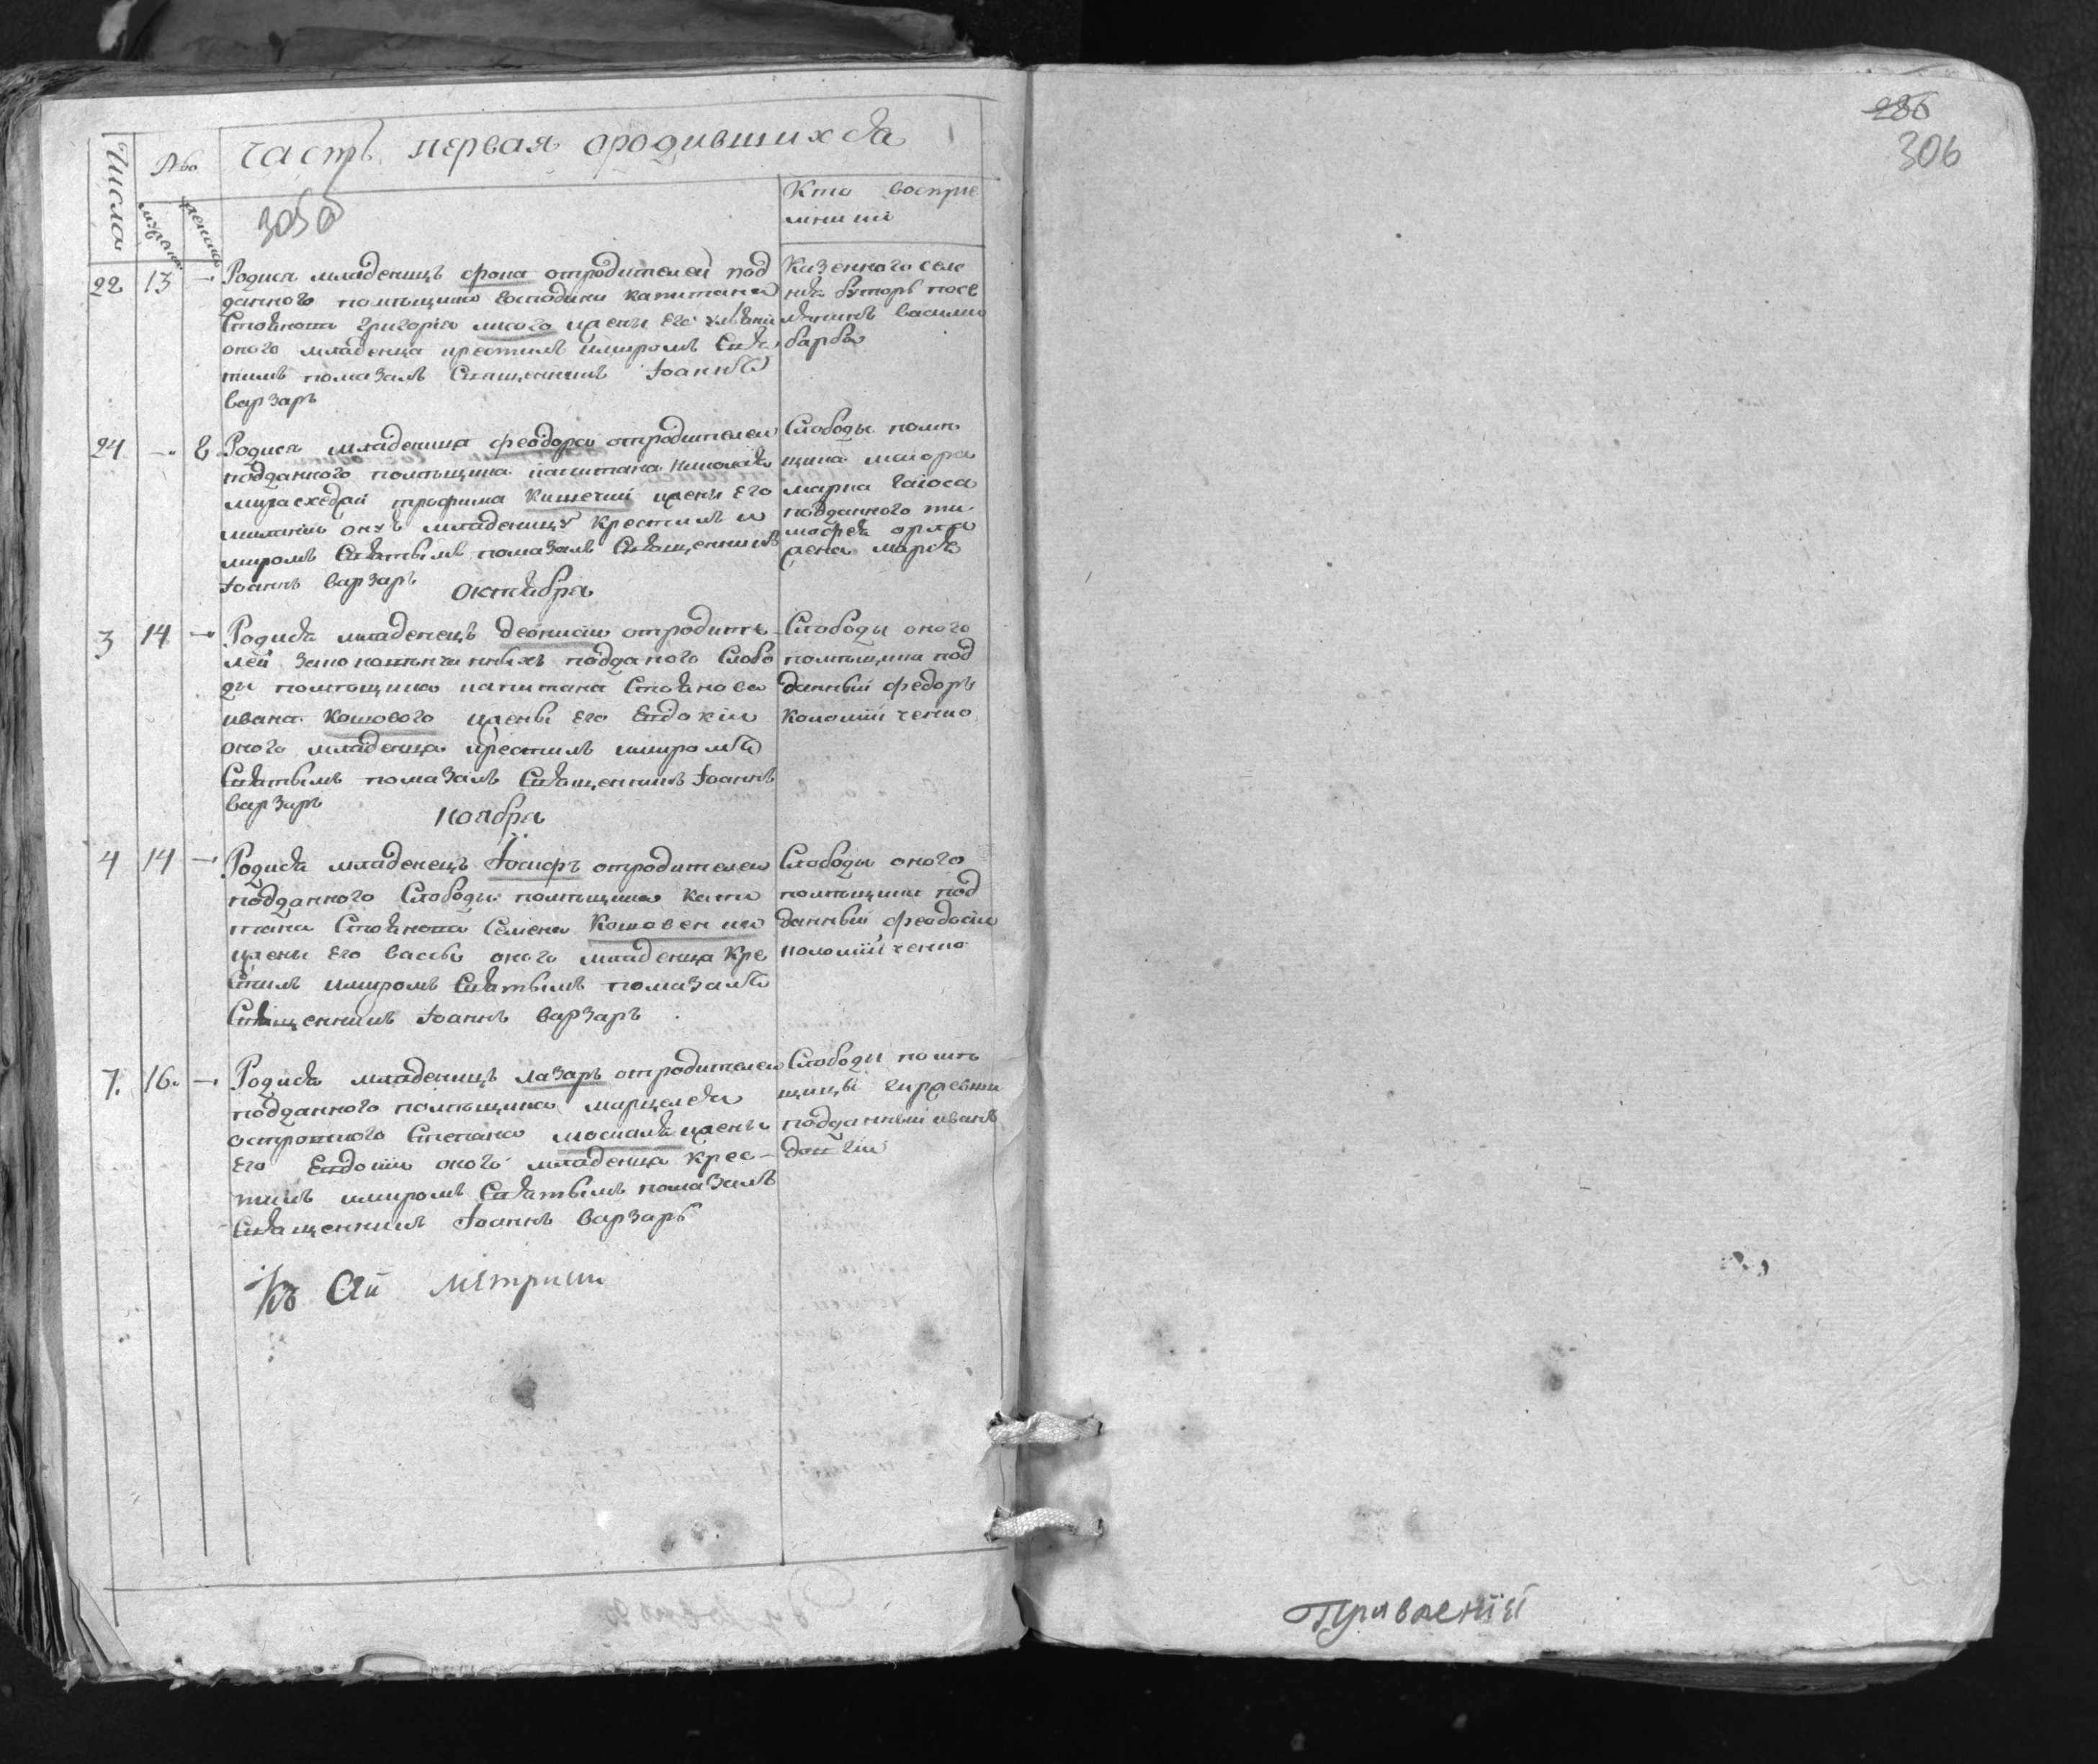 Числа
№
мужеска
женска
Часть первая ородившихся
305 об
Кто воспрїе
мники
22 13 — Родися младенецъ фома отродителей под
данного помѣщика Господина капитана
Стоянова Григорїя жены Его
оного младенца крестилъ имиромъ Свя
тимъ помазалъ Священникъ Іоаннъ
варзаръ
Казенного селе
нїя буторъ посе
лянинъ василий
барба
24 — 8 Родися младеница феодора отродителей
подданного помѣщика капитана николая
трофима жены Его
онуь младеницу крестилъ и
миромъ Святымъ помазалъ Священникъ
Іоаннъ варзаръ
Слободы помѣ
щика маиора
марка гаюса
подданного ти
мофея орла
жена марїя
Октября
3 14 — Родися младенецъ деонисїй отродите
лей законовѣнчанныхъ подданого Слобо
ды помѣщика капитана Стоянова
ивана Кошового жены Его Евдокїи
оного младенца крестилъ имиромъ
Святымъ помазалъ Священникъ Іоаннъ
варзаръ
Слободы оного
помѣщика под
данный федоръ
коломїйченко
Ноября
4 14 — Родися младенецъ Іосифъ отродителей
подданного Слободы помѣщика капи
тана Стоянова Семена Кошовенка
жены Его вассы оного младенца кре
стилъ имиромъ Святымъ помазалъ
Священникъ Іоаннъ варзаръ
Слободы оного
помѣщика под
данный феодосїй
коломїйченко
7. 16. — Родися младенецъ лазаръ отродителей
подданного помѣщика
Степана москаля жены
Его Евдокїи оного младенца крес-
тилъ имиромъ Святымъ помазалъ
Священникъ Іоаннъ варзаръ
Слободы помѣ
щицы
подданный иванъ
Къ Сей метрики
286
306
Правленїи